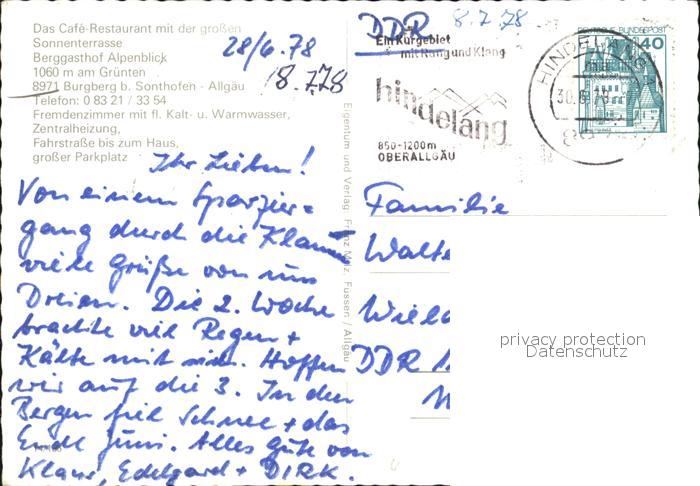 Das Café-Restaurant mit der großen
Sonnenterrasse
Berggasthof Alpenblick
1060 m am Grünten
8971 Burgberg b. Sonthofen - Allgäu
Telefon: 0 83 21 / 33 54
Fremdenzimmer mit fl. Kalt- u. Warmwasser,
Zentralheizung,
Fahrstraße bis zum Haus,
großer Parkplatz
28/6.78
8.7.78
Ihr Lieben!
Von einem Sparzier=
gang durch die Klamm
viele Grüße von uns
Dreien. Die 2. Woche
brachte viel Regen +
Kälte mit sich. Hoffen
wir auf die 3. In den
Bergen fiel Schnee + das
Ende Juni. Alles Gute von
Klaus, Edelgard + DIRK.
Eigentum und Verlag Franz Milz, Füssen / Allgäu
DDR
8.7.78
Ein Kurgebiet
mit Rang und Klang
hindelang
850-1200m
OBERALLGÄU
HINDELANG
30.6.78
DEUTSCHE BUNDESPOST
40
Familie
Walte
Wiela
DDR
privacy protection
Datenschutz